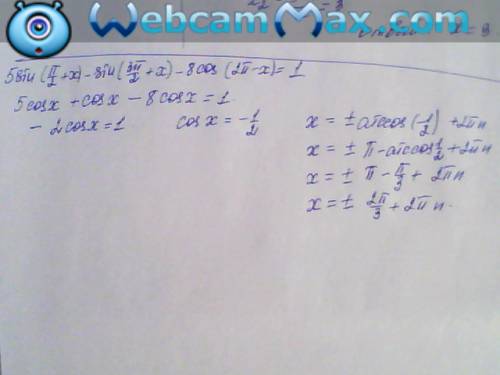 WebcamMax.com
5sin(π/2+x)-sin(3π/2+x)-8cos(2π-x)=1
5cosx+cosx-8cosx=1
-2cosx=1 cosx=-1/2
x=±arccos(-1/2)+2πn
x=±π-arccos1/2+2πn
x=±π-π/3+2πn
x=±2π/3+2πn.